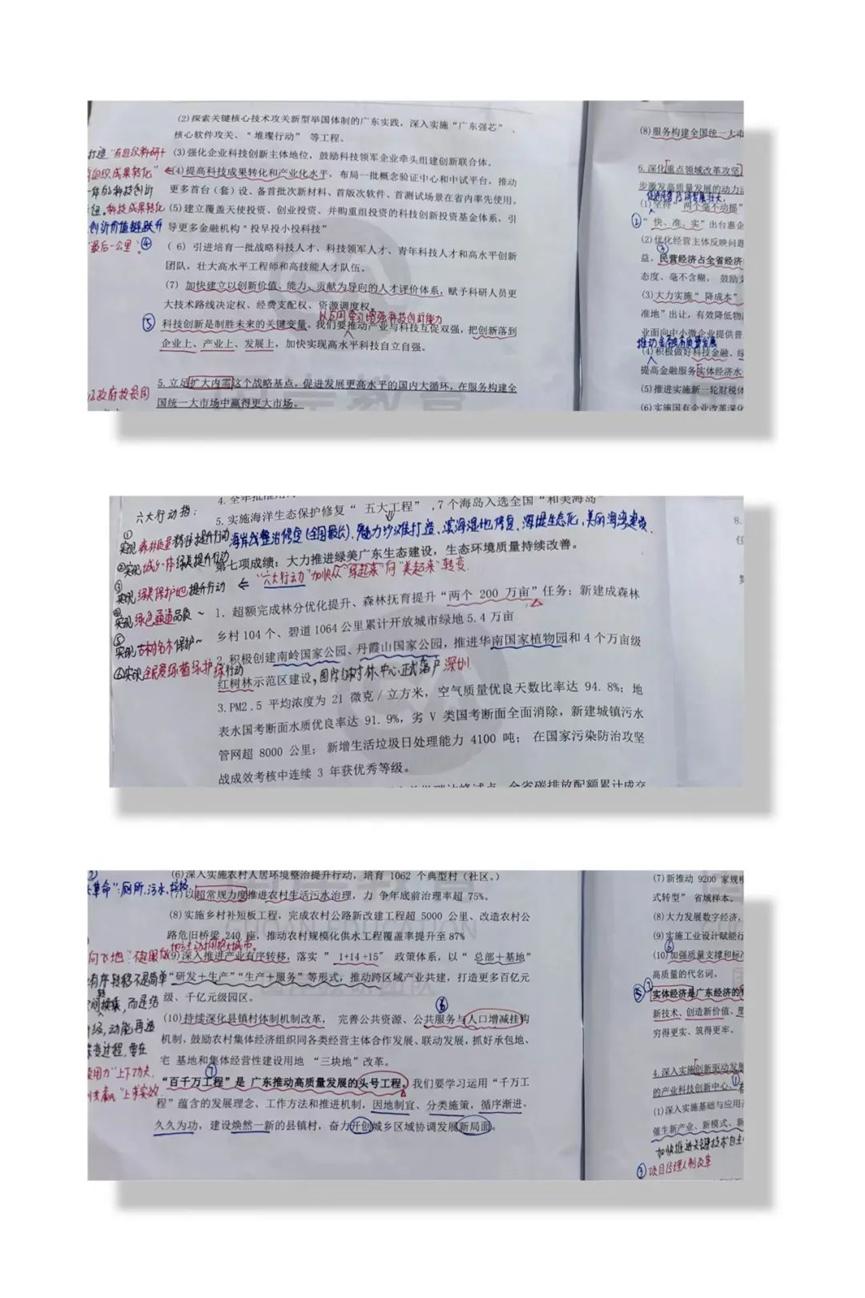 (2)探索关键核心技术攻关新型举国体制的广东实践，深入实施“广东强芯”、
核心软件攻关、“璀璨行动” 等工程。
(3)强化企业科技创新主体地位，鼓励科技领军企业牵头组建创新联合体。
(4)提高科技成果转化和产业化水平，布局一批概念验证中心和中试平台，推动
更多首台（套）设、备首批次新材料、首版次软件、首测试场景在省内率先使用。
(5)建立覆盖天使投资、创业投资、并购重组投资的科技创新投资基金体系，引
导更多金融机构“投早投小投科技”
( 6) 引进培育一批战略科技人才、科技领军人才、青年科技人才和高水平创新
团队，壮大高水平工程师和高技能人才队伍。
(7) 加快建立以创新价值、能力、贡献为导向的人才评价体系，赋予科研人员更
大技术路线决定权、经费支配权、资源调度权。
⑤ 科技创新是制胜未来的关键变量，我们要推动产业与科技互促双强，把创新落到
企业上、产业上、发展上，加快实现高水平科技自立自强。
5.立足扩大内需这个战略基点，促进发展更高水平的国内大循环，在服务构建全
国统一大市场中赢得更大市场。
科技成果转化
“最后一公里”④
(8)服务构建全国统一大市
6.深化重点领域改革攻坚
步激发高质量发展的动力
(1)坚持“两个毛不动摇”
“快、准、实”出台惠企
(2)优化经营主体反映问题
益。民营经济占全省经济
态度、毫不含糊， 鼓励支
(3)大力实施“降成本”
准地”出让，有效降低物
业面向中小微企业提供普
(4)积极做好科技金融、绿
提高金融服务实体经济水
(5)推进实施新一轮财税体
(6)实施国有企业改革深化
六大行动指：
5.实施海洋生态保护修复“ 五大工程” ,7个海岛入选全国“和美海岛”
海岸线整治修复(全国最长)、魅力沙滩打造、滨海湿地修复、海堤生态化、美丽海湾建设
第七项成绩：大力推进绿美广东生态建设，生态环境质量持续改善。
← “六大行动”加快从“绿起来”向“美起来”转变.
1. 超额完成林分优化提升、森林抚育提升“两个 200 万亩”任务；新建成森林
乡村104个、碧道1064公里累计开放城市绿地5.4万亩
2.积极创建南岭国家公园、丹霞山国家公园，推进华南国家植物园和4个万亩级
红树林示范区建设，国际红树林中心正式落户深圳
3.PM2.5 平均浓度为 21 微克/立方米， 空气质量优良天数比率达 94.8%；地
表水国考断面水质优良率达 91.9%，劣 V 类国考断面全面消除，新建城镇污水
管网超 8000 公里； 新增生活垃圾日处理能力 4100 吨； 在国家污染防治攻坚
战成效考核中连续 3 年获优秀等级。
(6)深入实施农村人居环境整治提升行动，培育 1062 个典型村（社区。）
(7)以超常规力度推进农村生活污水治理，力 争年底前治理率超 75%。
(8)实施乡村补短板工程，完成农村公路新改建工程超 5000 公里、改造农村公
路危旧桥梁 240 座，推动农村规模化供水工程覆盖率提升至87%
(9)深入推进产业有序转移，落实“ 1+14+15” 政策体系，以“ 总部+基地”
“研发+生产”“生产+服务”等形式，推动跨区域产业共建，打造更多百亿元
级、千亿元级园区。
(10)持续深化县镇村体制机制改革， 完善公共资源、公共服务与人口增减挂钩
机制，鼓励农村集体经济组织同各类经营主体合作发展、联动发展，抓好承包地、
宅 基地和集体经营性建设用地 “三块地”改革。
“百千万工程”是 广东推动高质量发展的头号工程，我们要学习运用“千万工
程”蕴含的发展理念、工作方法和推进机制，因地制宜、分类施策，循序渐进、
久久为功，建设焕然一新的县镇村，奋力开创城乡区域协调发展新局面。
(7)新推动 9200 家规模
式转型” 省域样本。
(8)大力发展数字经济，
(9)实施工业设计赋能行
(10)加强质量支撑和标
高质量的代名词。
实体经济是广东经济的
新技术、创造新价值、
穷得更实、筑得更牢。
4.深入实施创新驱动发展
的产业科技创新中心。
(1)深入实施基础与应用
催生新产业、新模式、新
③项目经理人制改革